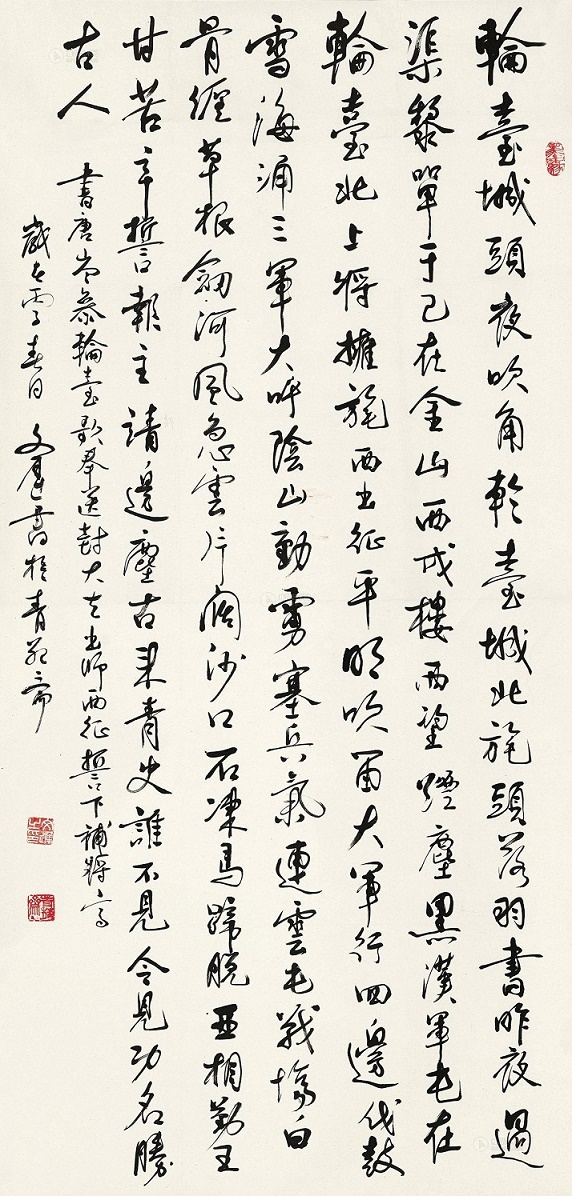 輪臺城頭夜吹角輪臺城北旄頭落羽書昨夜過
渠黎單于已在金山西戍樓西望煙塵黑漢軍屯在
輪臺北上將擁旄西出征平明吹笛大軍行四邊伐鼓
雪海涌三軍大呼陰山動虜塞兵氣連雲屯戰場白
骨纏草根劍河風急雲片闊沙口石凍馬蹄脫亞相勤王
甘苦辛誓報主靖邊塵古來青史誰不見今見功名勝
古人
書唐岑參輪臺歌奉送封大夫出師西征誓下補將字
歲在丙子春日 文 書於青 齋